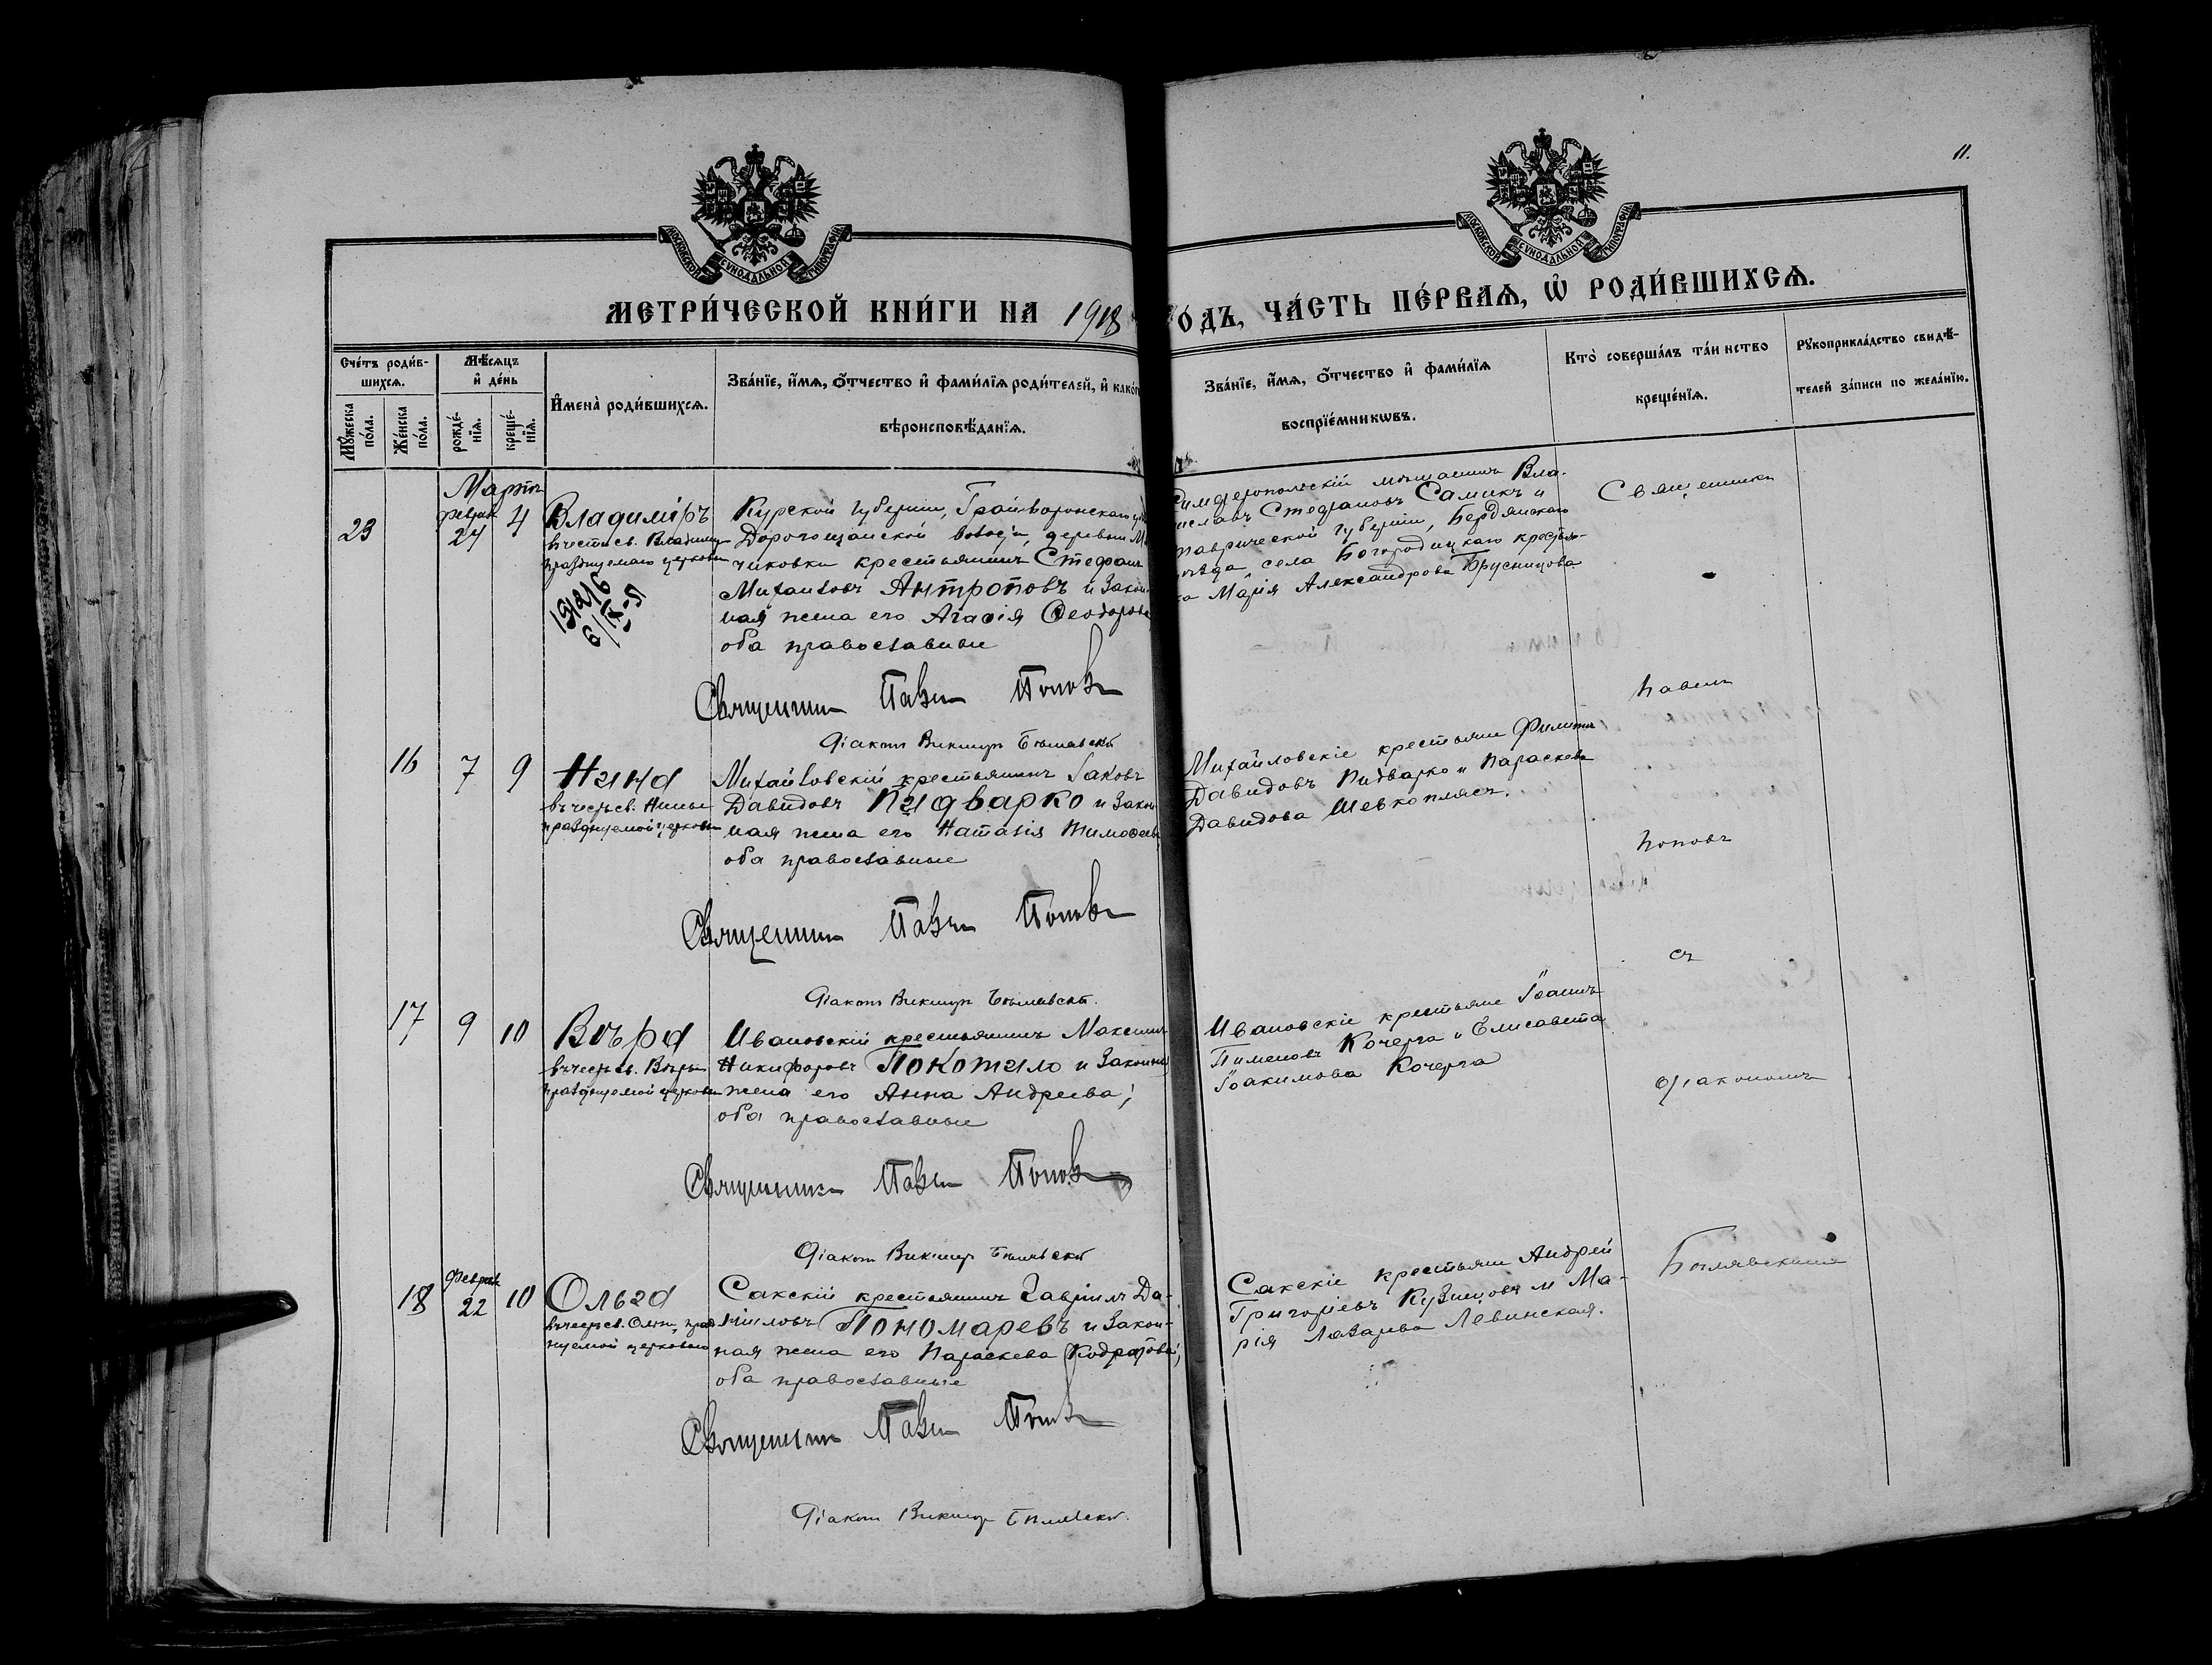 11.
МОСКОВСКОЙ СѴНОДАЛЬНОЙ ТИПОГРАФІИ
МОСКОВСКОЙ СѴНОДАЛЬНОЙ ТИПОГРАФІИ
МЕТРИ́ЧЕСКОЙ КНИ́ГИ НА 1918
ГО́ДЪ, ЧА́СТЬ ПЕ́РВАѦ, Ѡ҆ РОДИ́ВШИХСѦ.
Сче́тъ роди́в-
шихсѧ.
Мꙋ́жеска
по́ла.
Же́нска
по́ла.
Мѣ́сѧцъ
и҆ де́нь
рожде́-
нїѧ.
креще́-
нїѧ.
И҆мена̀ роди́вшихсѧ.
Зва́нїе, и҆́мѧ, ѻ҆́тчество и҆ фами́лїѧ роди́телей, и҆ како́г
вѣроисповѣ́данїѧ.
Зва́нїе, и҆́мѧ, ѻ҆́тчество и҆ фами́лїѧ
воспрїе́мникωвъ.
Кто̀ соверша́лъ та́инство
креще́нїѧ.
Рꙋкоприкла́дство свидѣ́-
телей за́писи по жела́нїю.
Мартъ
23
Феврал
24
4
Владиміръ
въ честь св. Владимир
празднуемаго церковью
6/IX-
Курской губерніи, Грайворонскаго
Дорогощанской волости, деревни М
чиковки крестьянинъ Стефанъ
Михаиловъ Антроповъ и закон
ная жена его Агаѳія Ѳеодорова
оба православные
Священникъ Павелъ Поповъ
Діаконъ Викторъ Бѣлявскій
Симферопольскій мѣщанинъ Вла-
иславъ Стефановъ Самикъ и
Таврической губерніи, Бердянскаго
уѣзда, села Богородицкаго крестьян-
ка Марія Александрова Брусницова
Священникъ
Павелъ
Поповъ
съ
діакономъ
Бѣлявскимъ
16
7
9
Нина
въ честь св. Нины
празднуемой церковью
Михайловскій крестьянинъ Іаковъ
Давидовъ Пидварко и закон
ная жена его Наталія Тимоѳеева
оба православные
Священникъ Павелъ Поповъ
Діаконъ Викторъ Бѣлявскій.
Михайловскіе крестьяне Филиппъ
Давидовъ Пидварко и Параскева
Давидова Шевкоплясъ.
17
9
10
Вѣра
въ честь св. Вѣры
празднуемой церковью
Ивановскій крестьянинъ Максимъ
Никифоровъ Покотило и законная
жена его Анна Андреева;
оба православные
Священникъ Павелъ Поповъ
Діаконъ Викторъ Бѣлявскій
Ивановскіе крестьяне Іоаннъ
Пименовъ Кочерга и Елисавета
Іоакимова Кочерга
18
Феврал
22
10
Ольга
въ честь св. Ольги, празд
нуемой церковью
Сакскій крестьянинъ Гавріилъ Да-
ніиловъ Пономаревъ и закон-
ная жена его Параскева Кодратова;
оба православные
Священникъ Павелъ Поповъ
Діаконъ Викторъ Бѣлявскій.
Сакскіе крестьяне Андрей
Григоріевъ Кузнецовъ и Ма-
рія Лазарева Левинская.